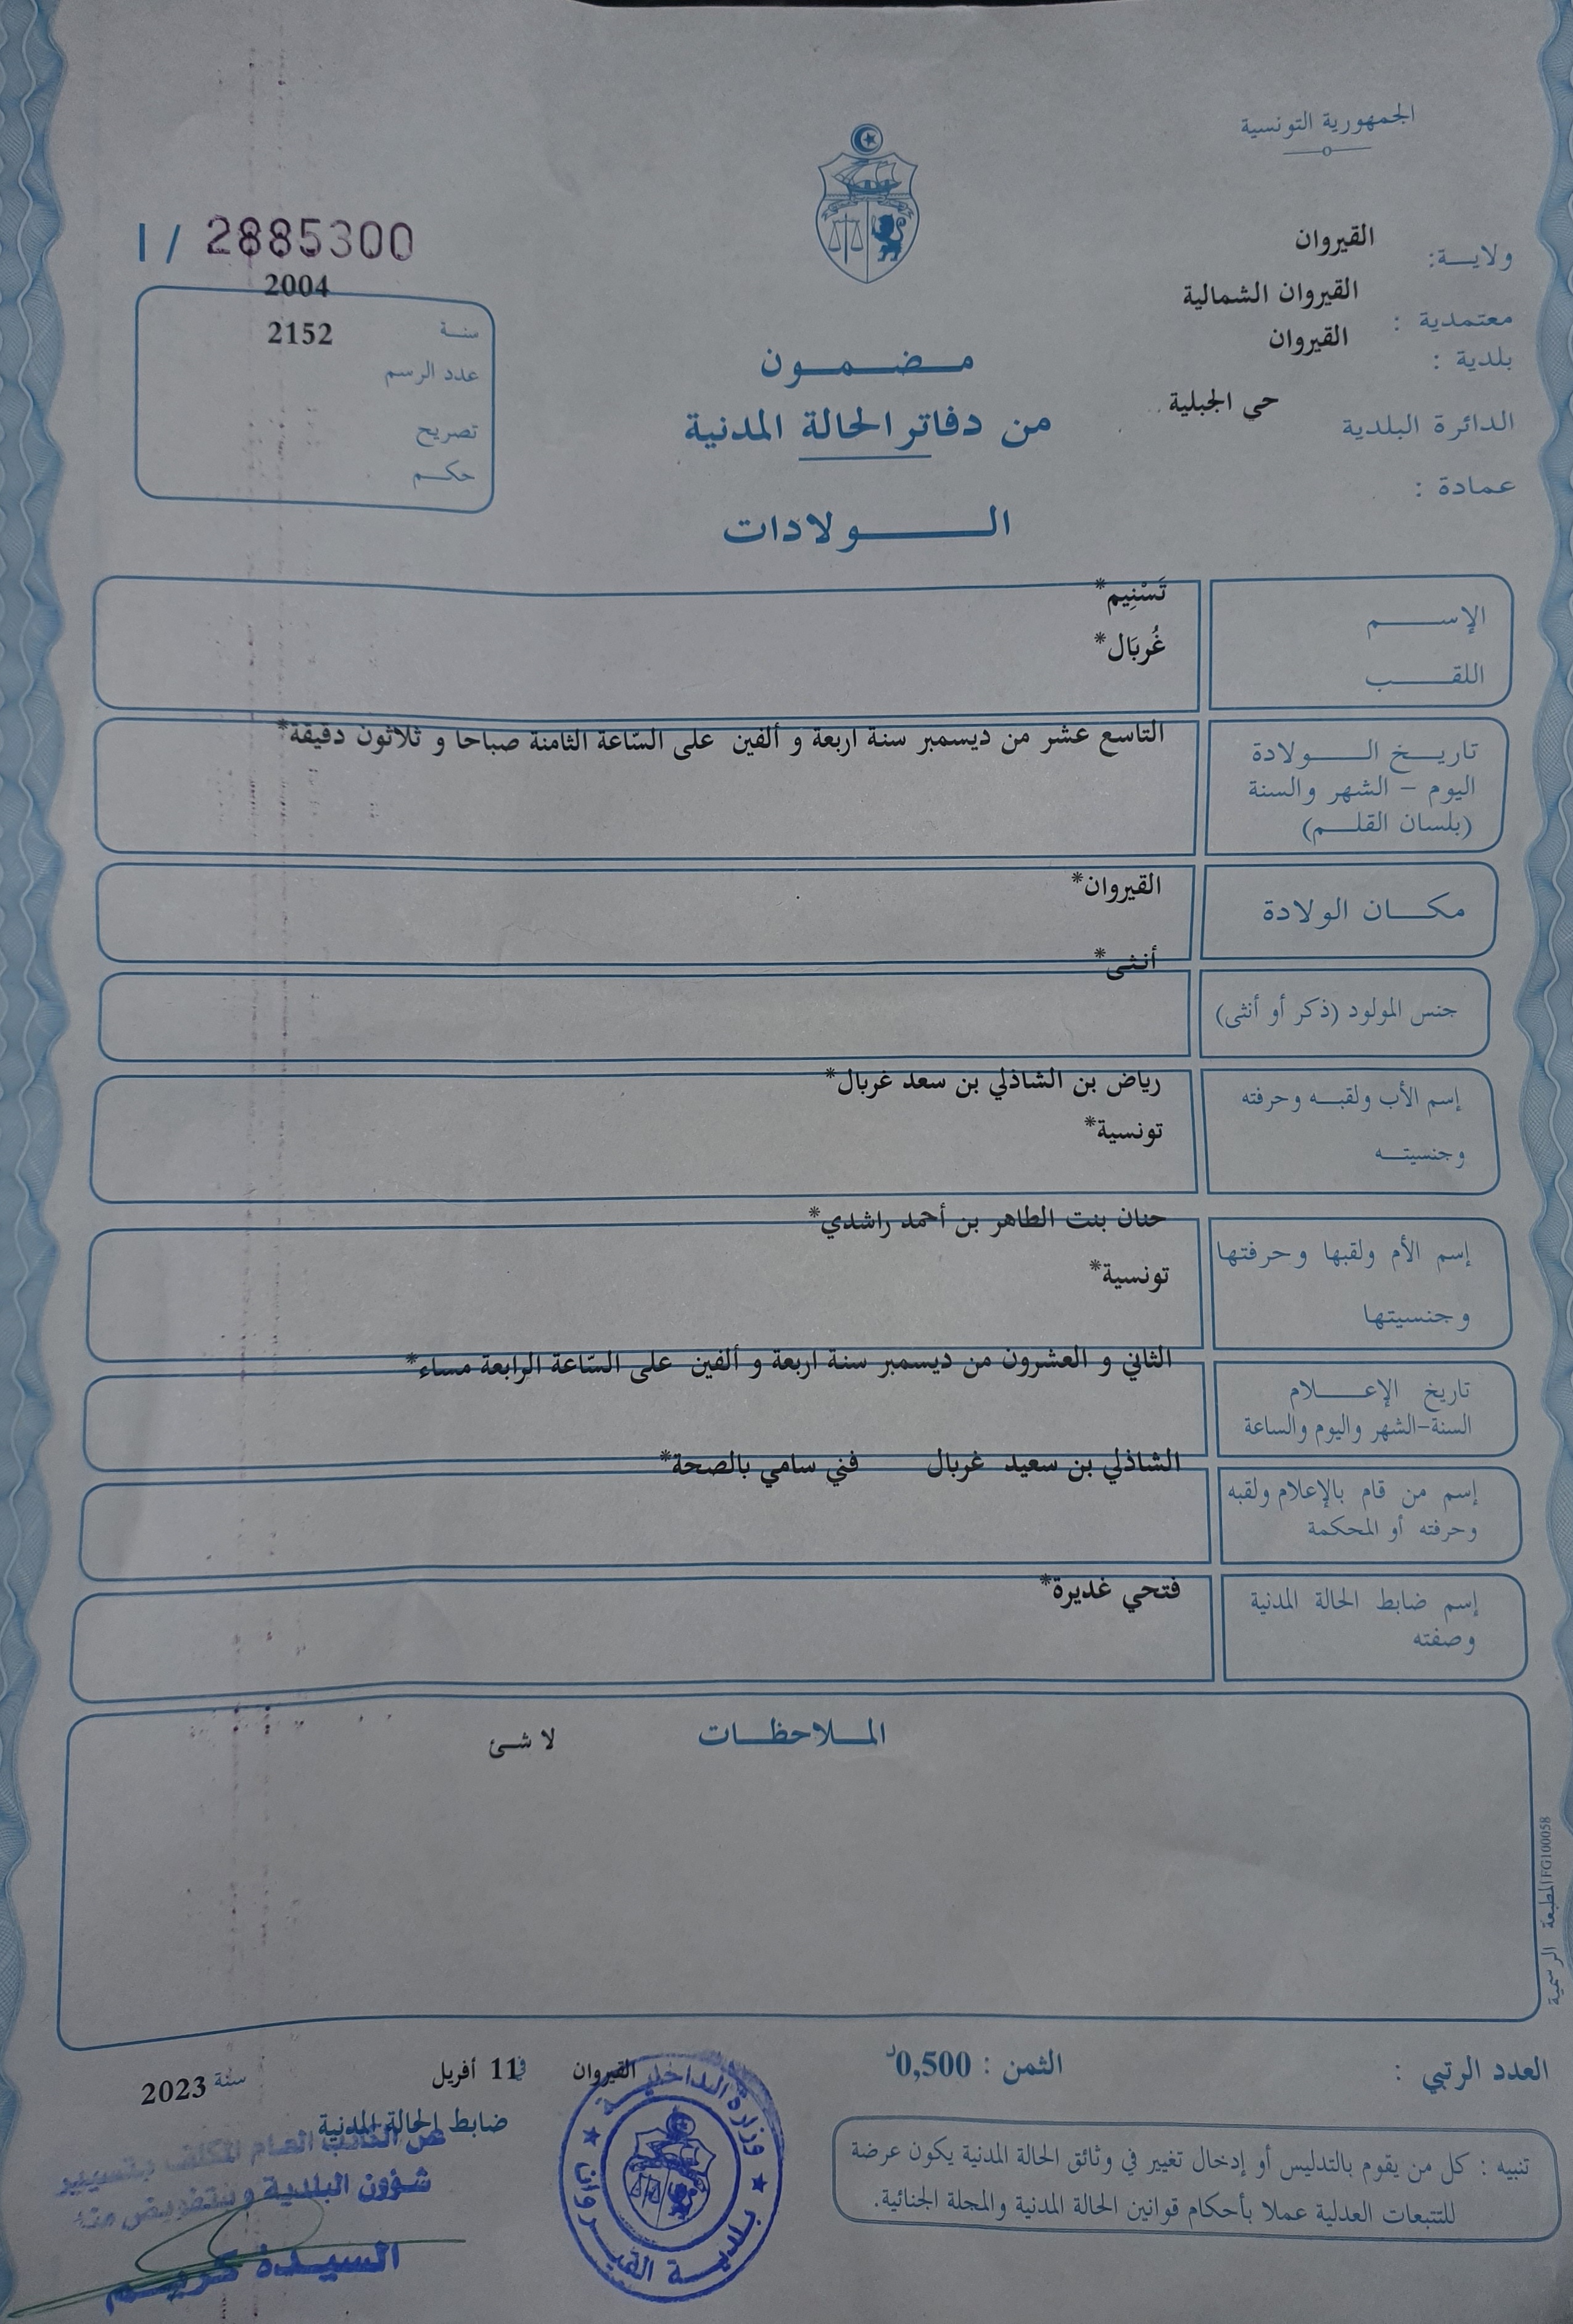 الجمهورية التونسية
ولاية: القيروان
معتمدية : القيروان الشمالية
بلدية : القيروان
الدائرة البلدية حي الجبلية
عمادة :
I / 2885300
2004
سنة 2152
عدد الرسم
تصريح
حكم
مضمون
من دفاتر الحالة المدنية
الولادات
الإسم تَسْنِيم*
اللقب غُربَال*
تاريخ الولادة التاسع عشر من ديسمبر سنة اربعة و ألفين على السّاعة الثامنة صباحا و ثلاثون دقيقة*
اليوم – الشهر والسنة
(بلسان القلم)
مكان الولادة القيروان*
أنثى*
جنس المولود (ذكر أو أنثى)
إسم الأب ولقبه وحرفته رياض بن الشاذلي بن سعد غربال*
وجنسيته تونسية*
حنان بنت الطاهر بن أحمد راشدي*
إسم الأم ولقبها وحرفتها
وجنسيتها تونسية*
الثاني و العشرون من ديسمبر سنة اربعة و ألفين على السّاعة الرابعة مساء*
تاريخ الإعلام
السنة-الشهر واليوم والساعة
الشاذلي بن سعيد غربال فني سامي بالصحة*
إسم من قام بالإعلام ولقبه
وحرفته أو المحكمة
إسم ضابط الحالة المدنية فتحي غديرة*
وصفته
الملاحظات لا شئ
المطبعة الرسمية FG100058
العدد الرتبي :
الثمن : 0,500د
القيروان في 11 أفريل سنة 2023
ضابط الحالة المدنية
عن الكاتب العام المكلف بتسيير
شؤون البلدية وبتفويض منه
السيدة كريم
وزارة الداخلية
بلدية القيروان
تنبيه : كل من يقوم بالتدليس أو إدخال تغيير في وثائق الحالة المدنية يكون عرضة
للتتبعات العدلية عملا بأحكام قوانين الحالة المدنية والمجلة الجنائية.